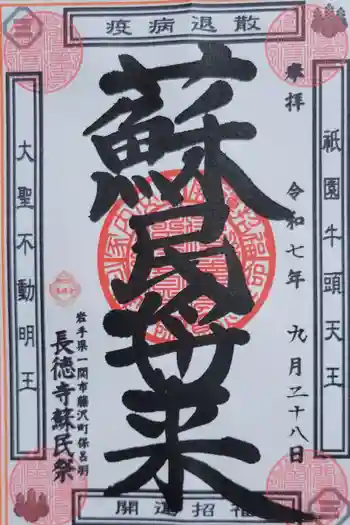 疫病退散
奉拝
祇園牛頭天王
令和七年 九月二十八日
蘇民来
大聖不動明王
岩手県一関市藤沢町保呂羽
長徳寺蘇民祭
開運招福